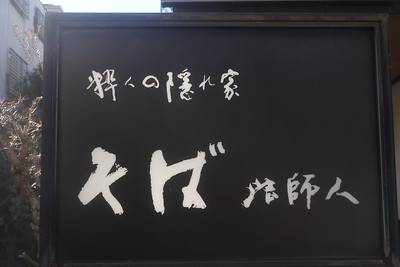 粋人の隠れ家
そば 法師人